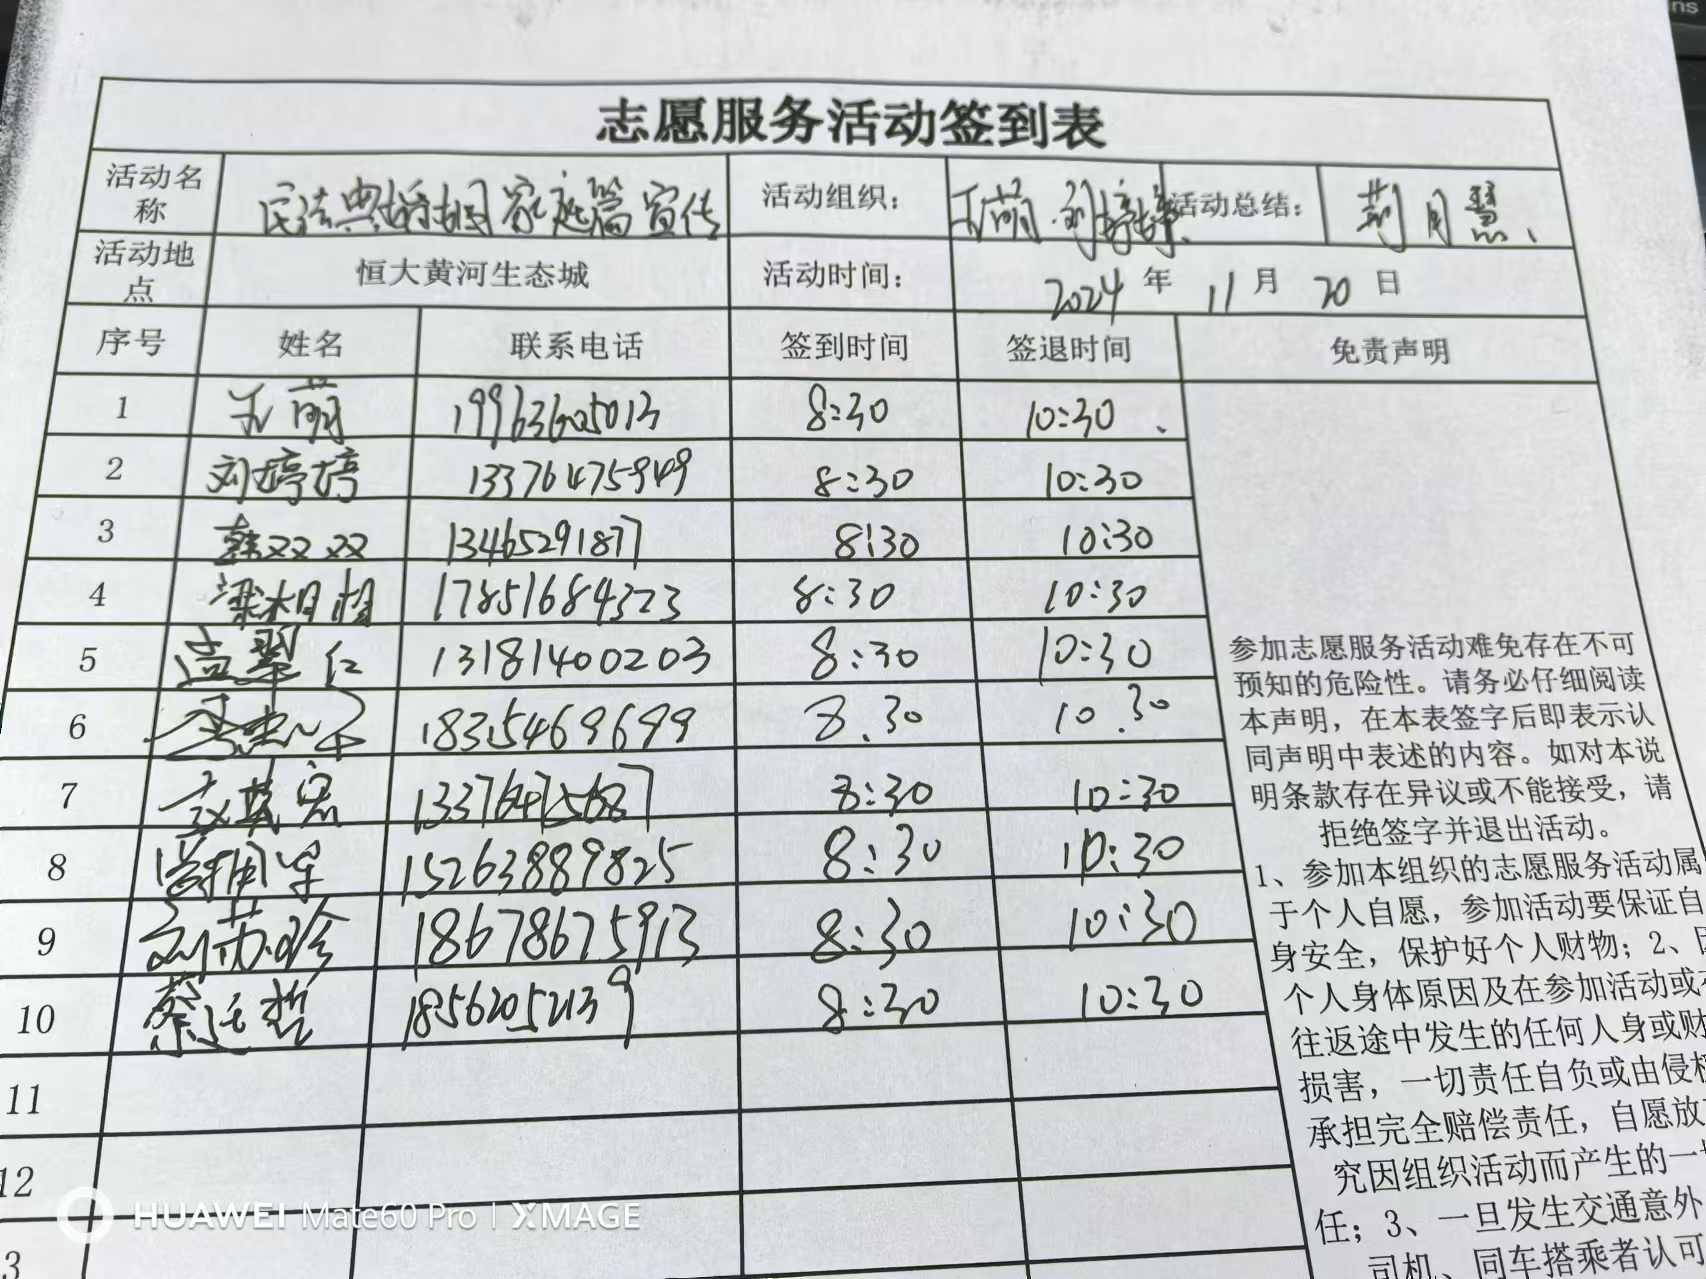 志愿服务活动签到表
活动名称 民法典婚姻家庭篇宣传 活动组织： 王萌 刘婷婷 活动总结： 荆月慧
活动地点 恒大黄河生态城 活动时间： 2024 年 11 月 20 日
序号 姓名 联系电话 签到时间 签退时间 免责声明
1 王萌 19963605013 8:30 10:30
2 刘婷婷 13376475949 8:30 10:30
3 韩双双 13465291877 8:30 10:30
4 梁相相 17851684323 8:30 10:30
5 孟翠红 13181400203 8:30 10:30
6 18354696699 8:30 10:30
7 8:30 10:30
8 15263889825 8:30 10:30
9 18678675913 8:30 10:30
10 18562052139 8:30 10:30
11
12
3
参加志愿服务活动难免存在不可
预知的危险性。请务必仔细阅读
本声明，在本表签字后即表示认
同声明中表述的内容。如对本说
明条款存在异议或不能接受，请
拒绝签字并退出活动。
1、参加本组织的志愿服务活动属
于个人自愿，参加活动要保证自
身安全，保护好个人财物；2、因
个人身体原因及在参加活动或
往返途中发生的任何人身或财
损害，一切责任自负或由侵权
承担完全赔偿责任，自愿放
究因组织活动而产生的一
任；3、一旦发生交通意外
司机、同车搭乘者认可
HUAWEI Mate60 Pro | XMAGE